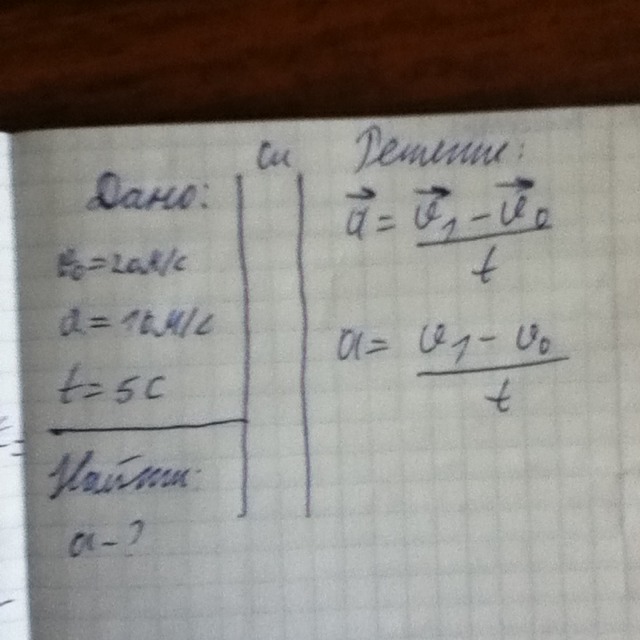 Дано:
υ₀=20м/с
a=10м/с
t=5с
Найти:
a-?
Си
Решение:
a⃗ = (υ⃗₁-υ⃗₀)/t
a = (υ₁-υ₀)/t